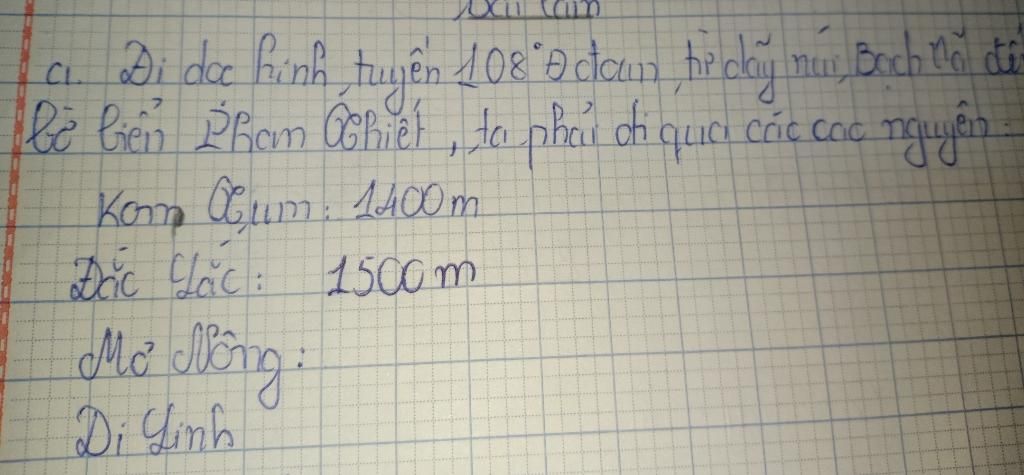 Bài làm
a. Đi dọc kinh tuyến 108°Đ đoạn từ dãy núi Bạch Mã đến
bờ biển Phan Thiết, ta phải đi qua các cao nguyên:
Kom Tum: 1400m
Đắc Lắc: 1500m
Mơ Nông:
Di Linh